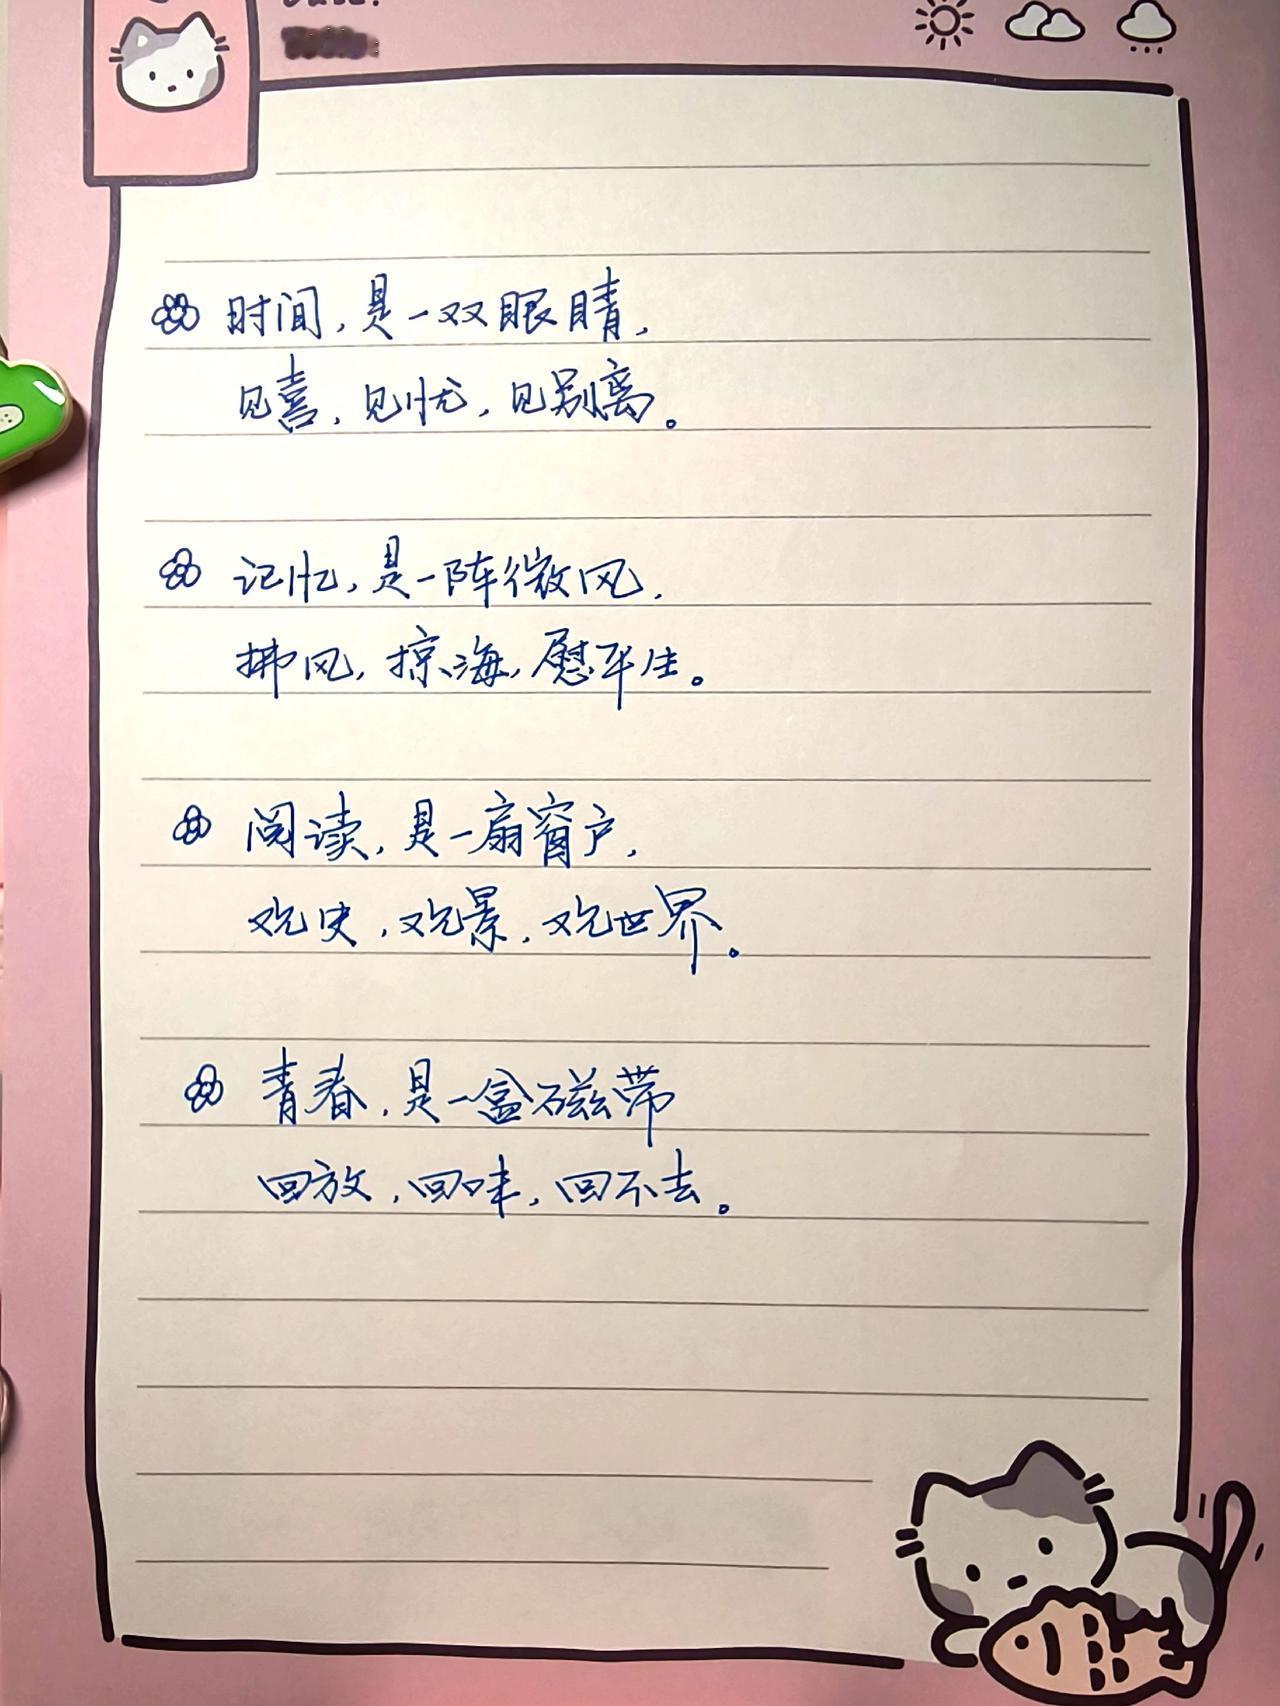 时间，是一双眼睛，
见喜，见忧，见别离。
记忆，是一阵微风，
拂风，掠海，慰平生。
阅读，是一扇窗户，
观史，观景，观世界。
青春，是一盒磁带
回放，回味，回不去。